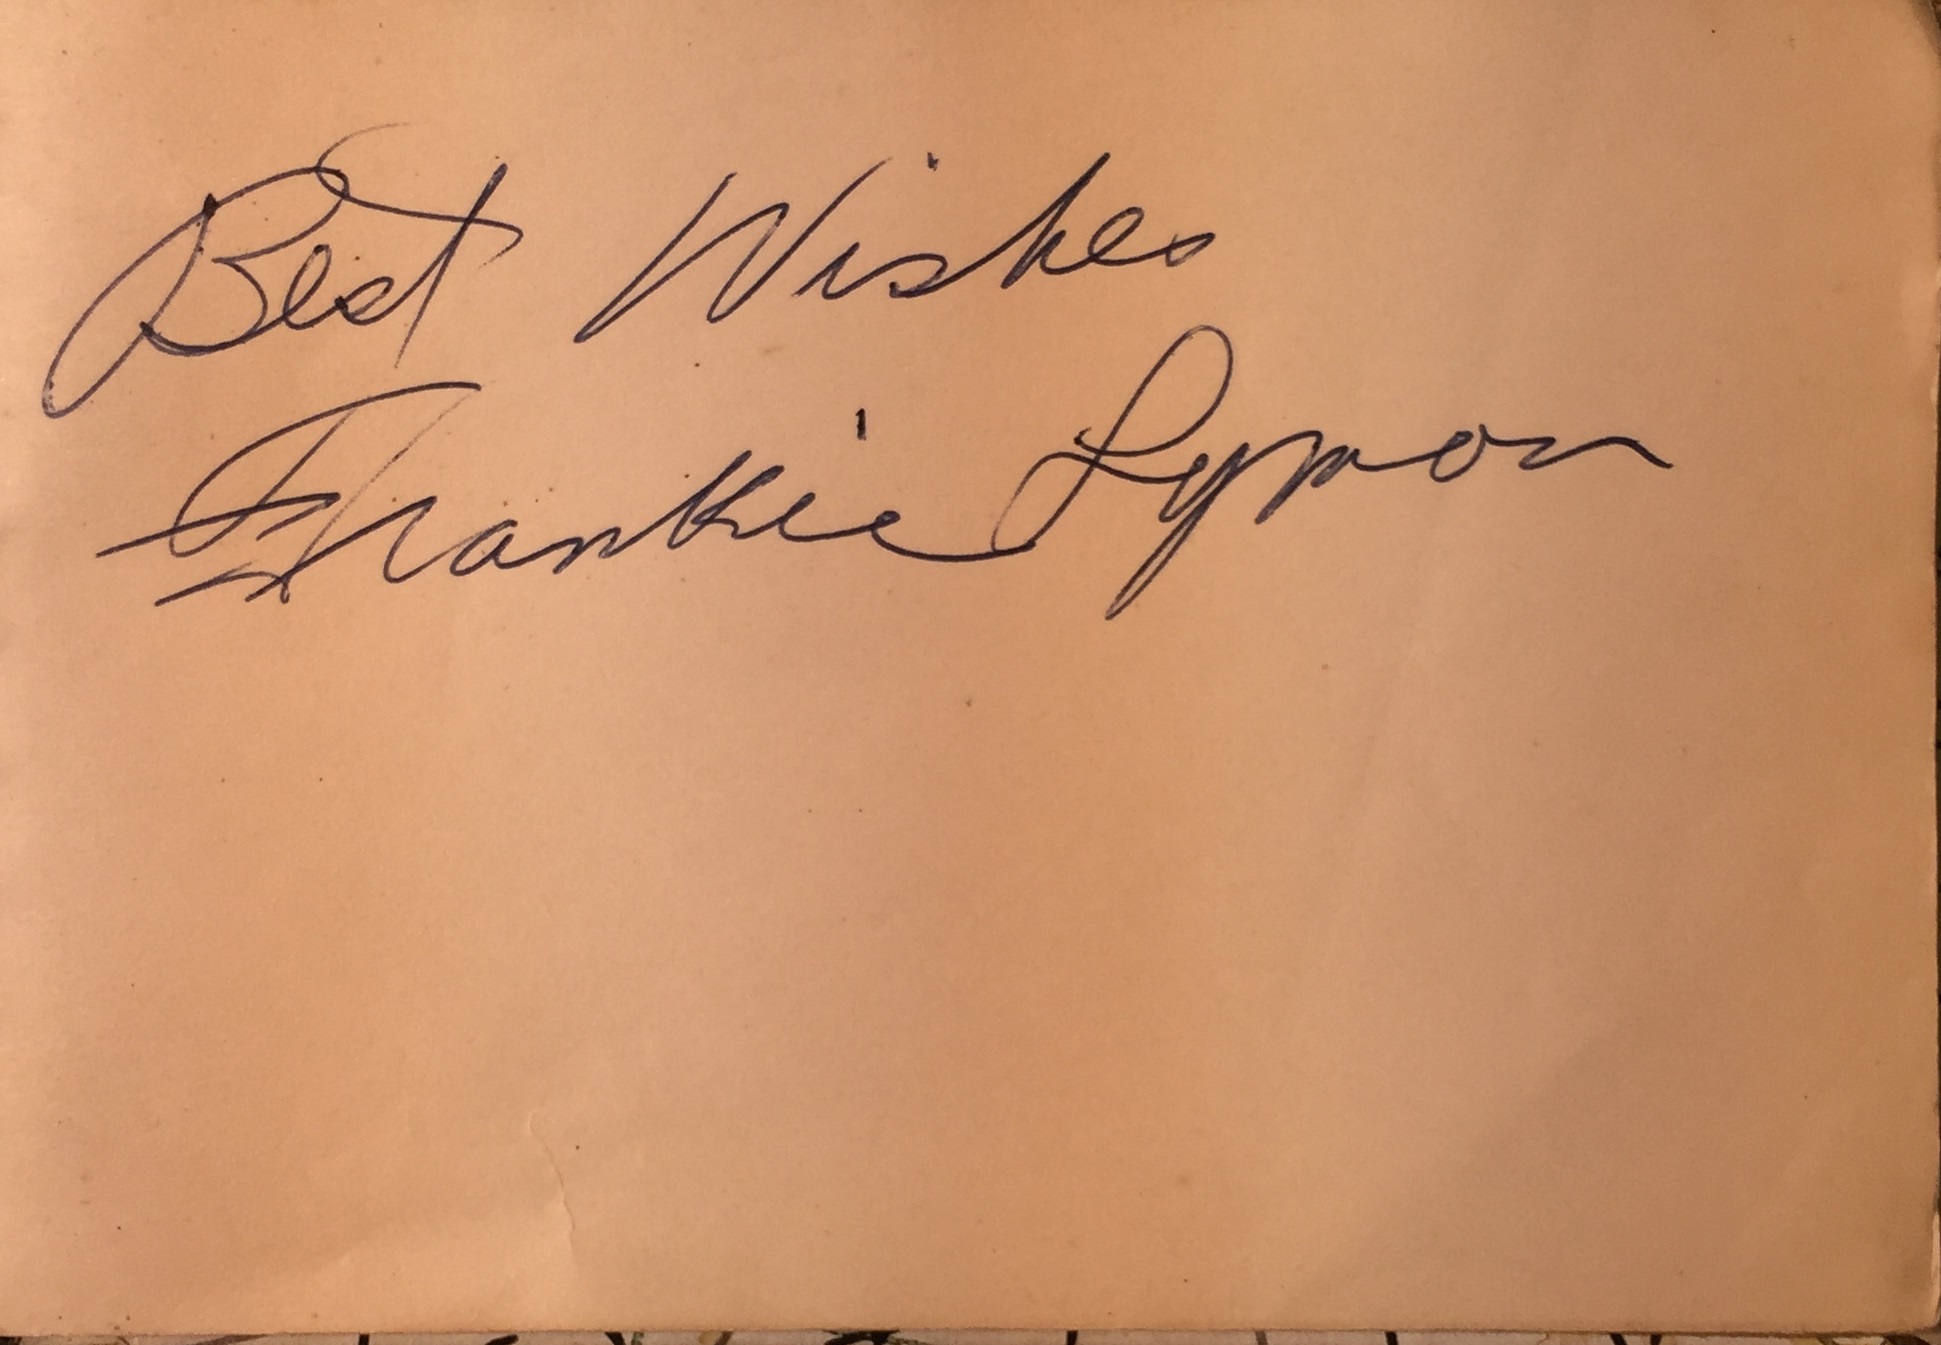 Best Wishes
Frankie Lymon